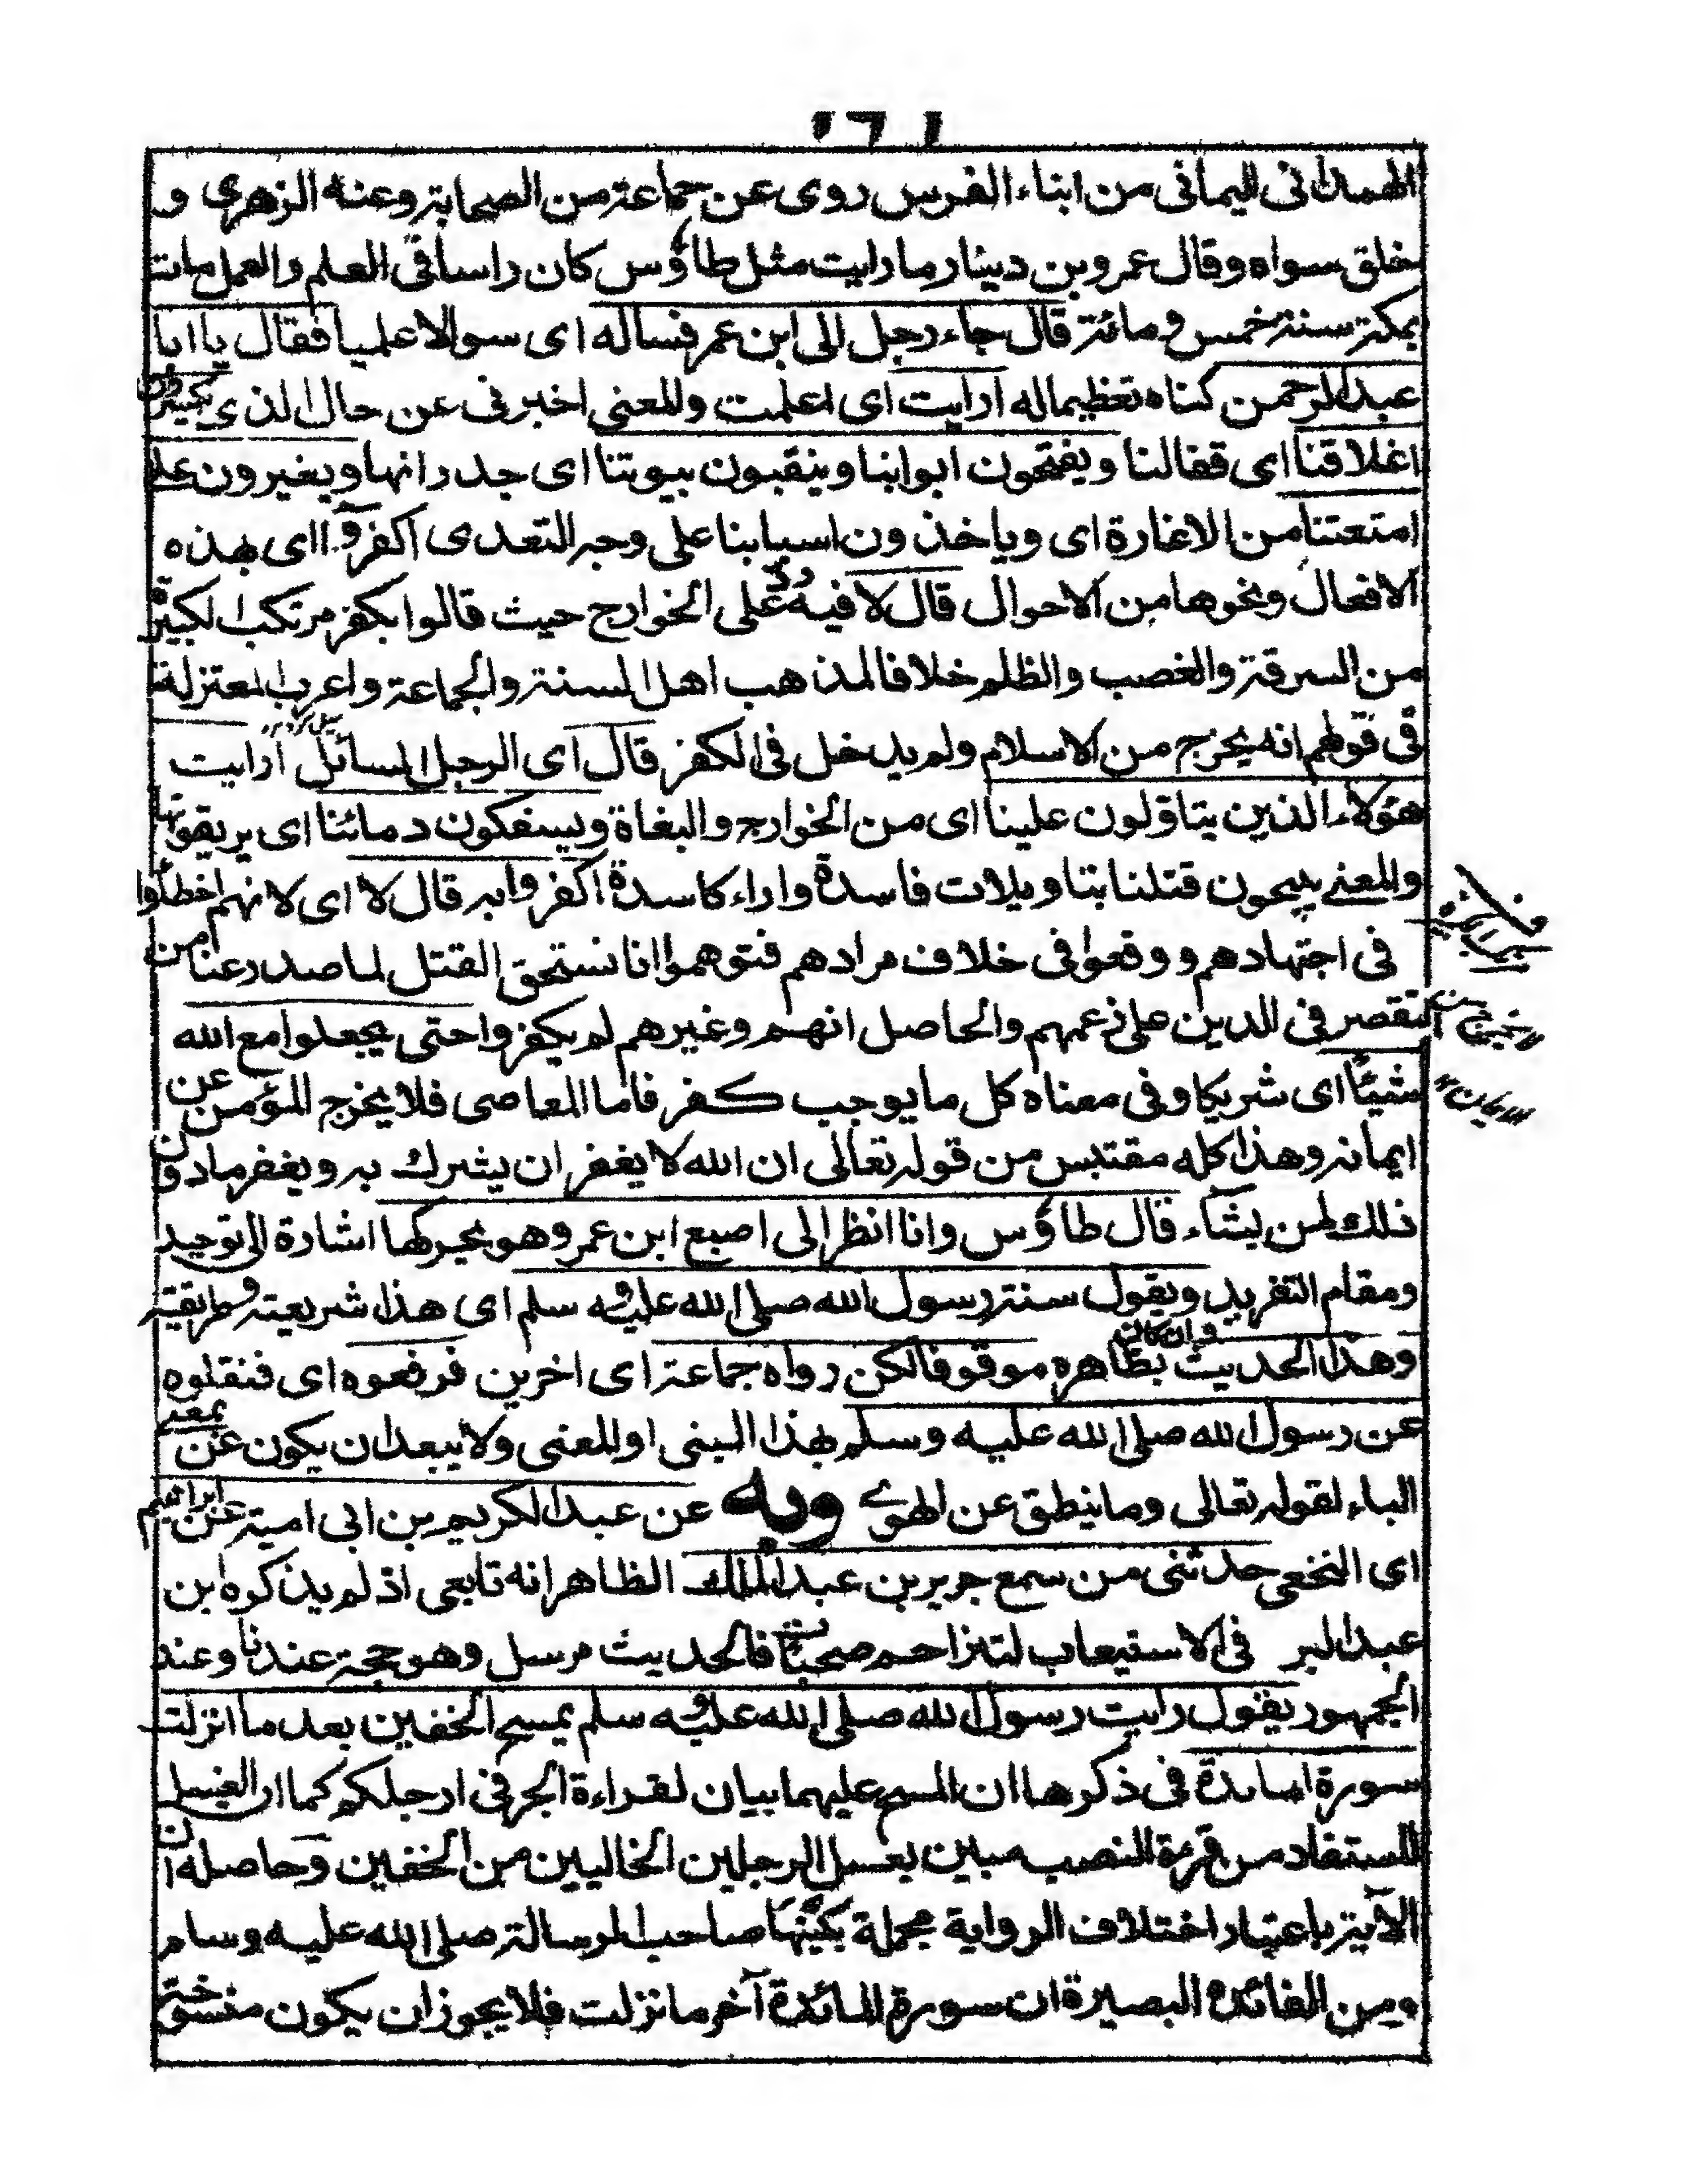 الهمدانى اليمانى من ابناء الفرس روى عن جماعة من الصحابة وعنه الزهرى و
خلق سواه وقال عمرو بن دينار ما رايت مثل طاؤس كان راسا فى العلم والعمل مات
بمكة سنة خمس ومائة قال جاء رجل الى ابن عمر فساله اى سوالا علميا فقال يا ابا
عبد الرحمن كناه تعظيما له ارايت اى اعلمت والمعنى اخبرنى عن حال الذى يكسرون
اغلاقنا اى قفالنا ويفتحون ابوابنا وينقبون بيوتنا اى جدرانها ويغيرون على
امتعتنا من الاغارة اى وياخذون اسبابنا على وجه التعدى اكفروا اى بهذه
الافعال ونحوها من الاحوال قال لا فيه رد على الخوارج حيث قالوا بكفر مرتكب الكبيرة
من السرقة والغصب والظلم خلافا لمذهب اهل السنة والجماعة واعرب المعتزلة
فى قولهم انه يخرج من الاسلام ولم يدخل فى الكفر قال اى الرجل السائل ارايت
هؤلاء الذين يتاولون علينا اى من الخوارج والبغاة ويسفكون دمائنا اى يريقونها
والمعنى يبيحون قتلنا بتاويلات فاسدة واراء كاسدة اكفروا به قال لا اى لانهم اخطاوا
فى اجتهادهم ووقعوا فى خلاف مرادهم فتوهموا انا نستحق القتل لما صدر عنا من
تقصر فى الدين على زعمهم والحاصل انهم وغيرهم لم يكفروا حتى يجعلوا مع الله
شيئا اى شريكا وفى معناه كل ما يوجب كفر فاما المعاصى فلا يخرج المؤمن عن
ايمانه وهذا كله مقتبس من قوله تعالى ان الله لا يغفر ان يشرك به ويغفر ما دون
ذلك لمن يشاء قال طاؤس وانا انظر الى اصبع ابن عمر وهو يحركها اشارة الى توحيد
ومقام التفريد ويقول سنة رسول الله صلى الله عليه و سلم اى هذا شريعته وطريقته
وهذا الحديث وان كان بظاهره موقوفا لكن رواه جماعة اى اخرين فرفعوه اى فنقلوه
عن رسول الله صلى الله عليه وسلم بهذا المبنى او المعنى ولا يبعد ان يكون عن بمعنى
الباء لقوله تعالى وما ينطق عن الهوى وبه عن عبد الكريم بن ابى امية عن ابراهيم
اى النخعى حدثنى من سمع جرير بن عبد الملك الظاهر انه تابعى اذ لم يذكره ابن
عبد البر فى الاستيعاب فالحديث مرسل وهو حجة عندنا وعند
الجمهور يقول رايت رسول الله صلى الله عليه و سلم يمسح الخفين بعد ما انزلت
سورة المائدة فى ذكرها ان المسح عليهما بيان لقراءة الجر فى ارجلكم كما ان الغسل
المستفاد من قرءة النصب مبين بغسل الرجلين الخاليين من الخفين وحاصله ان
الآية باعتبار اختلاف الرواية مجملة صاحب الرسالة صلى الله عليه وسلم
ومن الفائدة البصيرة ان سورة المائدة آخر ما نزلت فلا يجوز ان يكون منسوخة